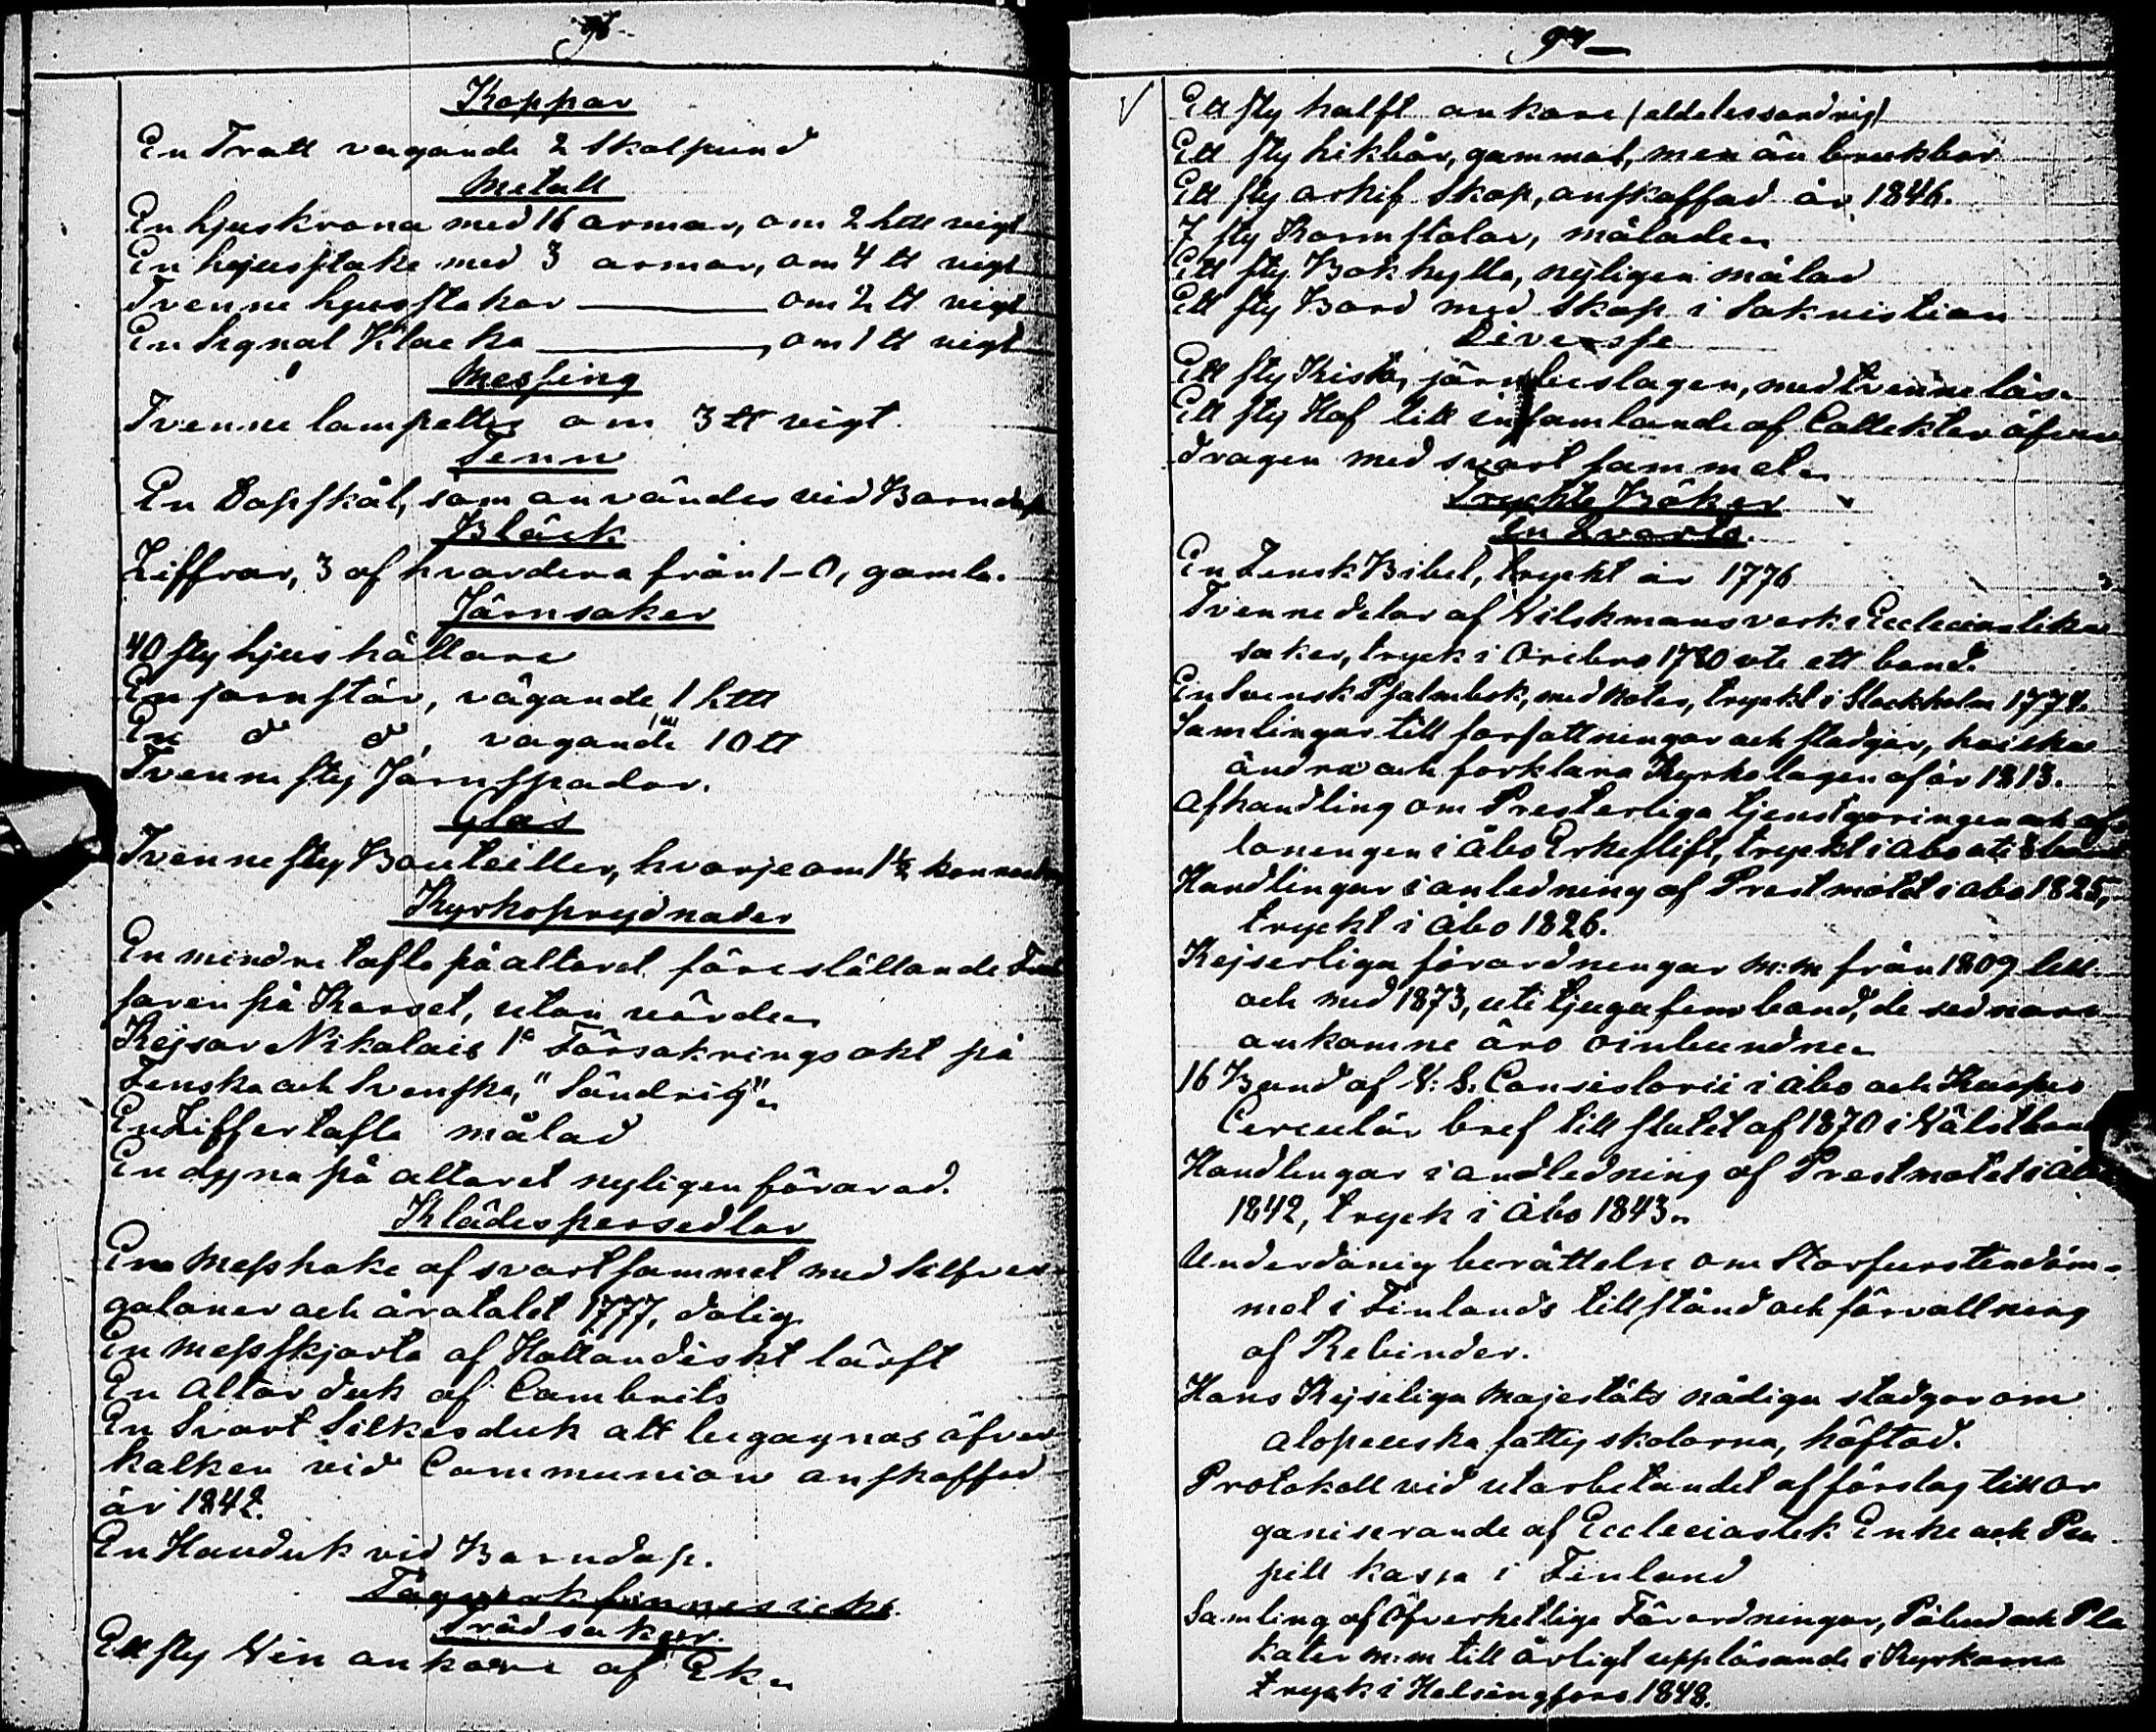 96-
Koppar
En Tratt vagande 2 Skalpund
Metall
En ljuskrona med 16 armar, om 2 L℔ vigt
En ljusstake med 3 armar, om 4 ℔ vigt
Tvenne ljusstakar — om 2 ℔ vigt
En Signal Klocka —, om 1 ℔ vigt
Messing
Tvenne lampetter om 3 ℔ vigt.
Tenn
En Dopskål, som användes vid Barndop
Bläck
Ziffror, 3 af hvardera från 1-0, gamla.
Järnsaker
40 sty ljus hållare
En jarnstör, vägande 1 L℔
En do do, vagande 10 ℔
Tvenne sty Järnspador.
Glas
Tvenne sty Bouteiller, hvarje om 1½
Kyrkoprydnader
En mindre tafla på altaret föreställande
saren på Korset, utan värde
Kejsar Nikolais 1a Försakrings akt på
Finska och Svenska, "Söndrig"
En Ziffertafla målad
En dyna på altaret nyligen förärad.
Klädespersedlar
En Messhake af svart sammet med silfver
galoner och åratalet 1777, dålig
En messskjorta af Hollandiskt lärft
En Altar duk af Cambrits
En Svart Silkesduk att begagnas öfver
kalken vid Communion anskaffad
år 1842.
En Handuk vid Barndop.
Tågverk finnes icke.
Trädsaker.
Ett sty Vin ankare af Ek
97-
Ett sty halft ankare (aldeles sondrig)
Ett sty likbår, gammal, men än brukbar
Ett sty arkif Skåp, anskaffad år 1846.
7 sty Karmstolar, målade
Ett sty Bokhylla, nyligen målad
Ett sty Bord med Skåp i Sakristian
Diversse
Ett sty Kista, järnbeslagen, med tvenne lås.
Ett sty Håf till insamlande af Collekter öfver
dragen med svart sammet
Tryckta Böker
in Qvarto.
En Finsk Bibel, tryckt år 1776
Tvenne delar af Wilskmans verk i Eccleciastika
saker, tryck i Örebro 1780 uti ett band.
En Svensk Psalmbok, med Noter, tryckt i Stockholm 1774.
Samlingar till forfattningar och stadgar, hvilka
ändra och forklara Kyrkolagen af år 1813.
Afhandling om Presterliga tjenstgöringen och af
loningen i Åbo Erkestift, tryckt i Åbo uti 3 band
Handlingar i anledning af Prestmötet i Åbo 1825,
tryckt i Åbo 1826.
Kejserliga förordningar m:m från 1809 till
och med 1873, uti tjugufem band, de sednare
ankomne äro oinbundne
16 Band af V: S. Consistorii i Åbo och Kuopio
Cerculär bref till slutet af 1870 i Wälskband
Handlingar i andledning af Prestmötet i Åbo
1842, tryck i Åbo 1843
Underdånig berättelse om Storfurstendöm-
met i Finlands tillstånd och förvaltning
af Rebinder.
Hans Kejseliga Majestäts nådiga stadgar om
Alopeuska fattig skolorna, häftad.
Protokoll vid utarbetandet af förslag till or
ganiserande af Eccleciastik Enke och Pu
pill kassa i Finland
Samling af Öfverhetlige Förordningar, Påbud och Pla
kater m:m till årligt uppläsande i Kyrkorna
tryck i Helsingfors 1848.